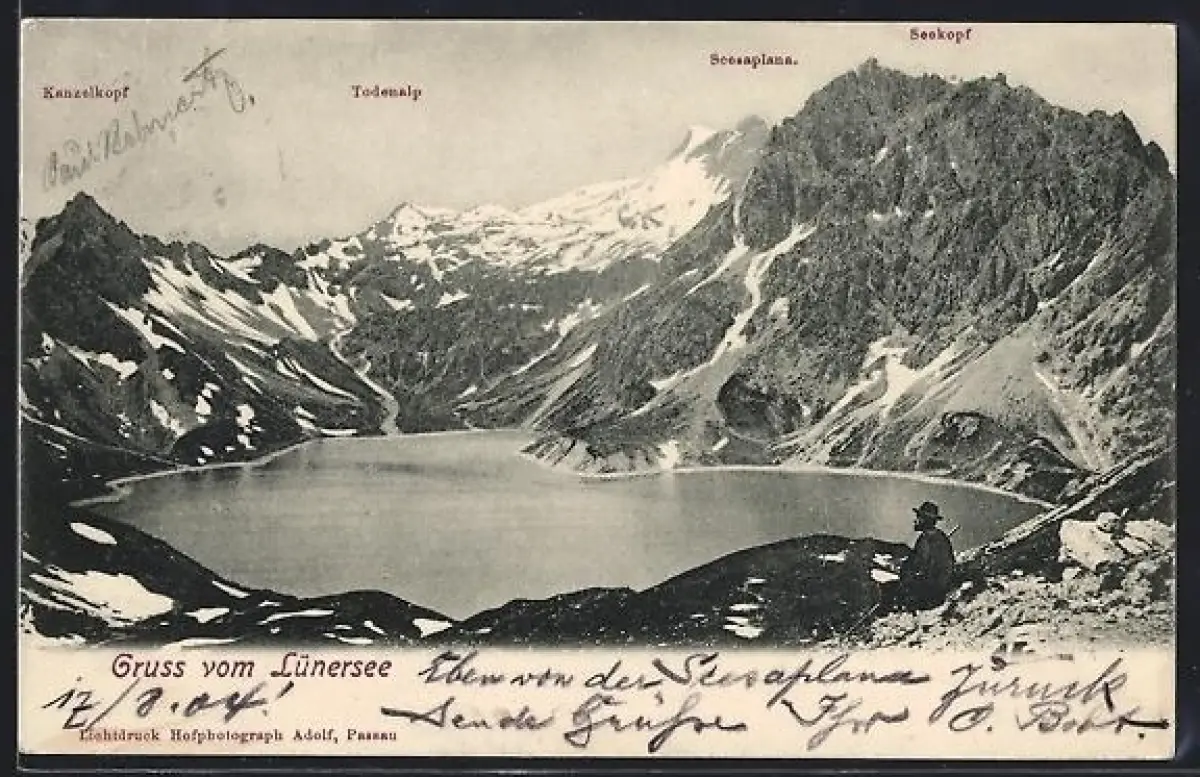 Seekopf
Scesaplana.
Kanzelkopf
Todenalp
Gruss vom Lünersee
Eben von der Scesaplana Zurück
17/8.04!
Sende Grüsse Ihr
Lichtdruck Hofphotograph Adolf, Passau